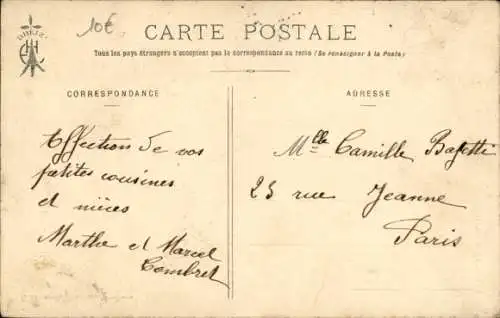 10€
DREIZ
CARTE POSTALE
Tous les pays étrangers n'acceptent pas la correspondance au recto (Se renseigner à la Poste)
CORRESPONDANCE
ADRESSE
Affection de vos
petites cousines
et nièces
Marthe et Marcel
Combret
Mlle Camille
25 rue Jeanne
Paris